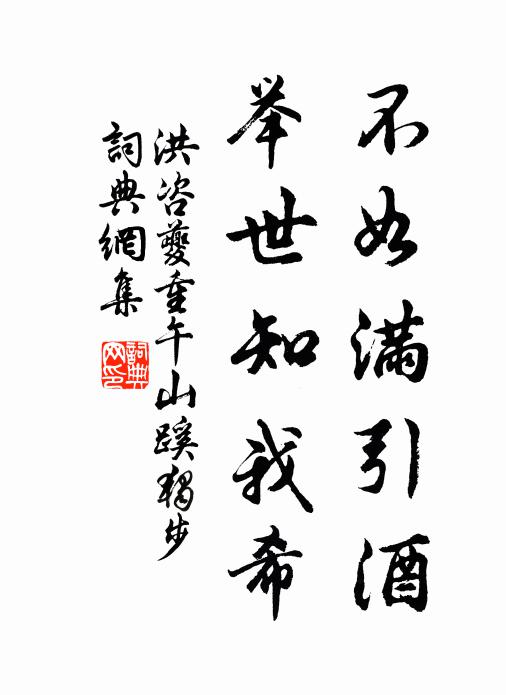 不如滿引酒
举世知我希
洪咨夔重午山蹊獨步
詞典網集
詞典网印